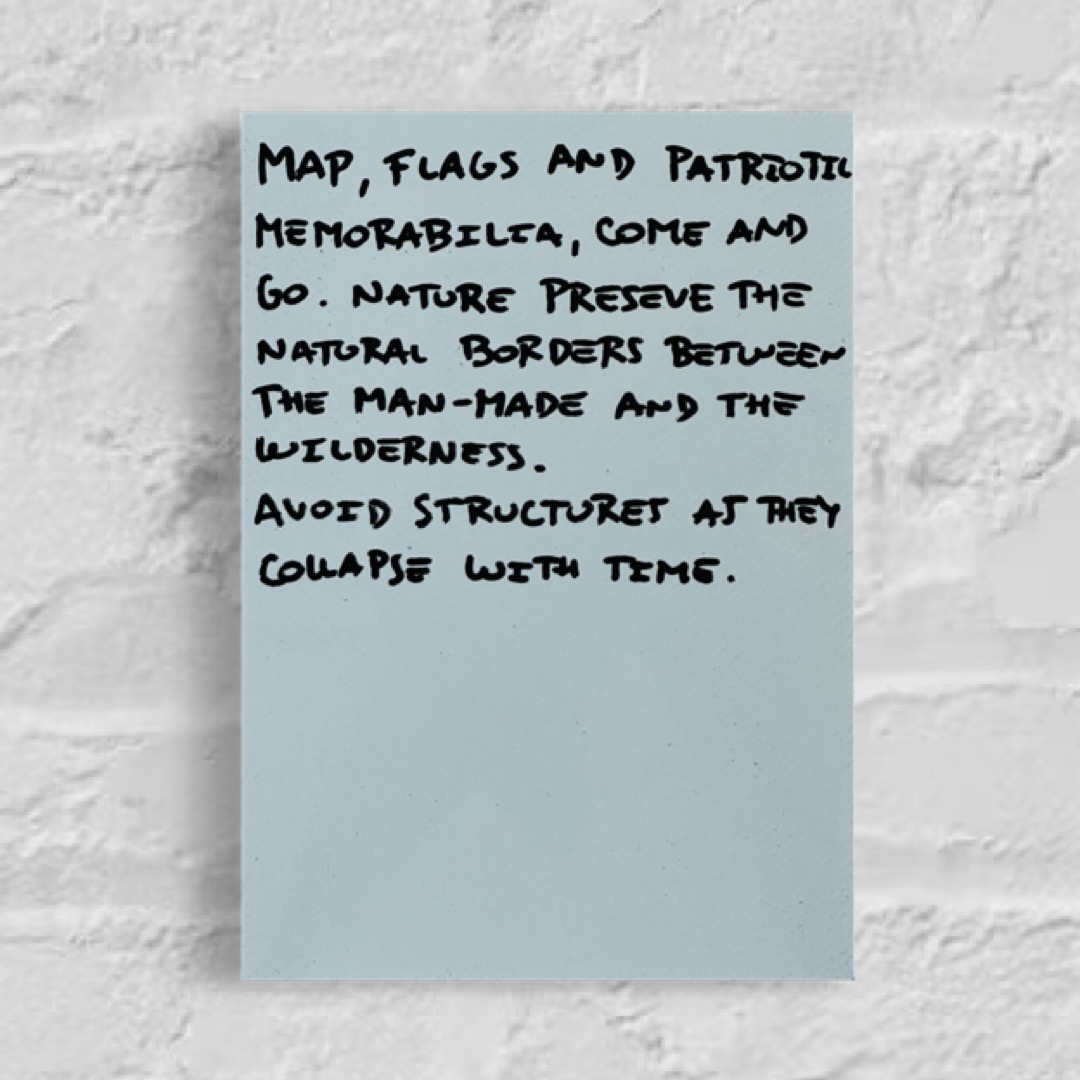 MAP, FLAGS AND PATRIOTIC
MEMORABILIA, COME AND
GO. NATURE PRESEVE THE
NATURAL BORDERS BETWEEN
THE MAN-MADE AND THE
WILDERNESS.
AVOID STRUCTURES AS THEY
COLLAPSE WITH TIME.